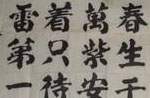 春生千
萬紫安
着只待
雷第一